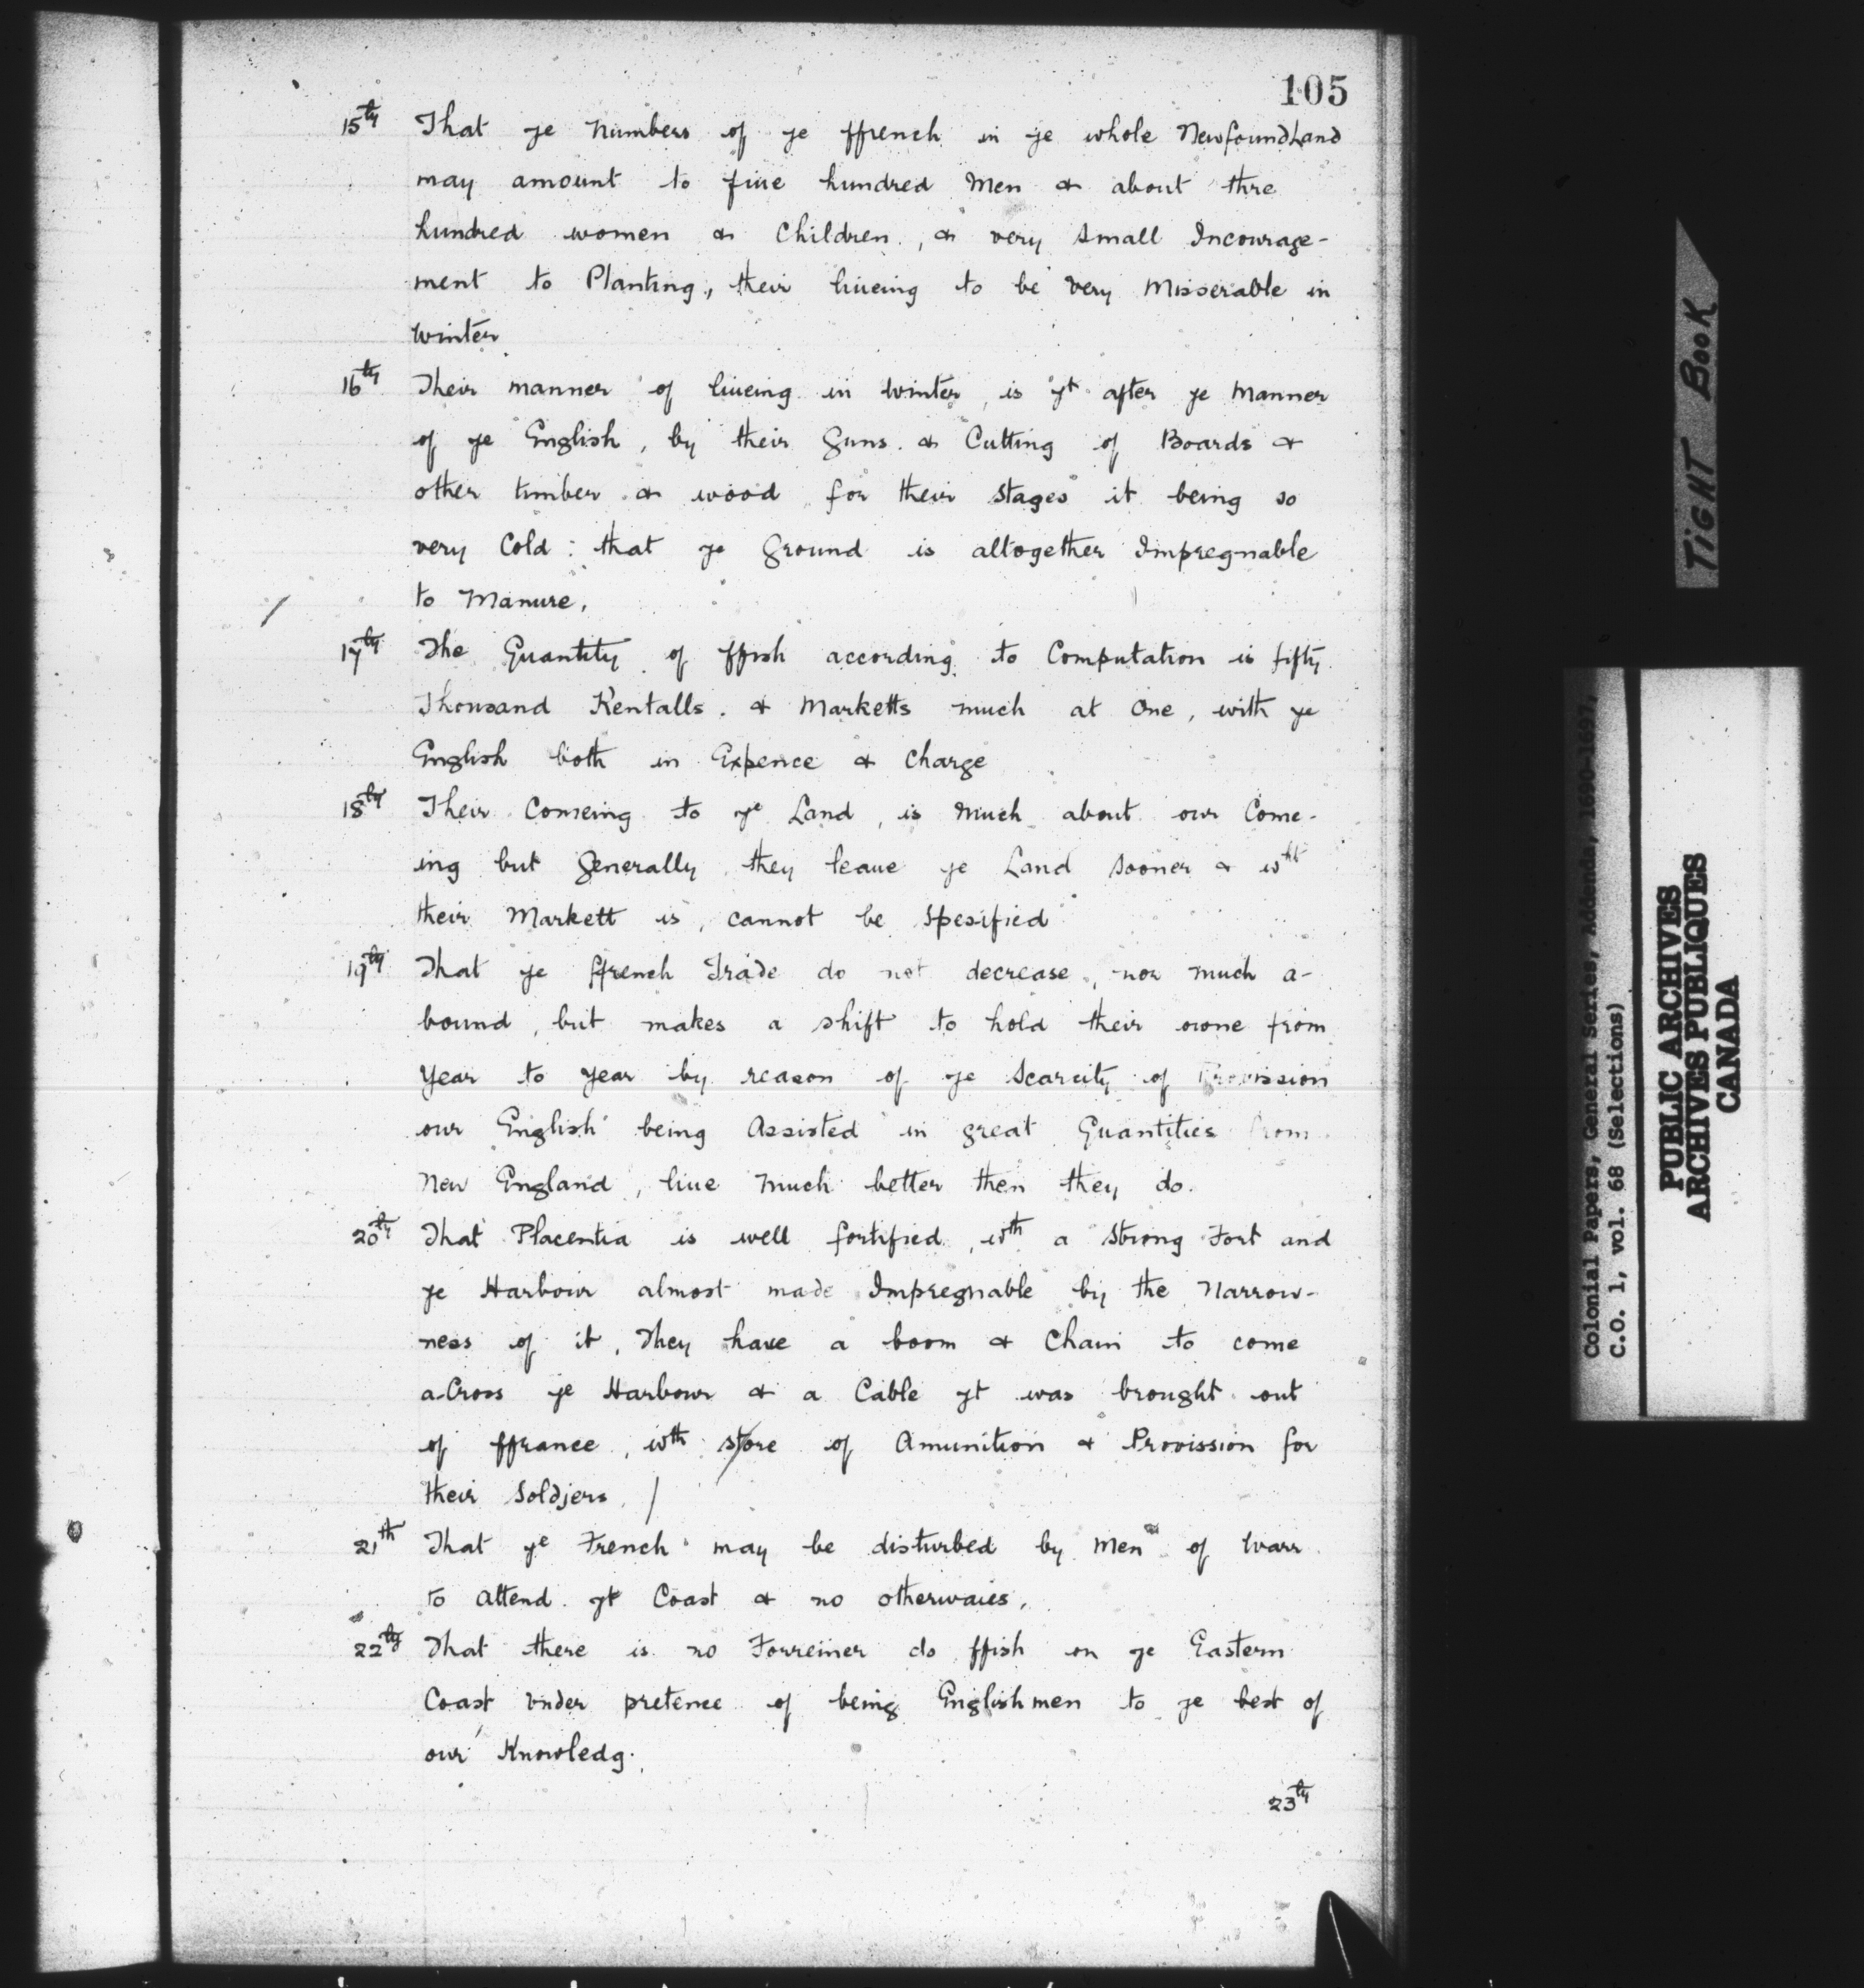 105
15ty That ye Numbers of ye ffrench in ye whole NewfoundLand
may amount to fiue hundred Men & about thre
hundred women & Children, & very small Incourage-
ment to Planting, their liueing to be very Misserable in
winter
16ty Their manner of liueing in winter, is yt after ye Manner
of ye English, by their Guns. & Cutting of Boards &
other timber & wood for their stages it being so
very Cold: that ye Ground is altogether Impregnable
to Manure.
17ty The Quantity of ffish according to Computation is fifty
Thousand Kentalls. & Marketts much at One, with ye
English both in Expence & Charge
18ty Their Comeing to ye Land, is Much about our Come-
ing but Generally they leaue ye Land sooner & wht
their Markett is, cannot be spesified
19ty That ye ffrench Trade do not decrease, nor much a-
bound, but makes a shift to hold their owne from
Year to Year by reason of ye Scarcity of Provission
our English being Assisted in great Quantities from
New England, liue Much better then they do.
20ty That Placentia is well fortified, wth a Strong Fort and
ye Harbour almost made Impregnable by the Narrow-
ness of it, They have a boom & Chain to come
a-Cross ye Harbour & a Cable yt was brought out
of ffrance, wth store of Amunition & Provission for
their Soldjers. /
21th That ye French may be disturbed by Men of Warr
to Attend yt Coast & no otherwaies.
22ty That there is no Forreiner do ffish on ye Eastern
Coast vnder pretence of being Englishmen to ye best of
our Knowledg.
23ty
TIGHT BOOK
Colonial Papers, General Series, Addenda, 1690-1697,
C.O. 1, vol. 68 (Selections)
PUBLIC ARCHIVES
ARCHIVES PUBLIQUES
CANADA